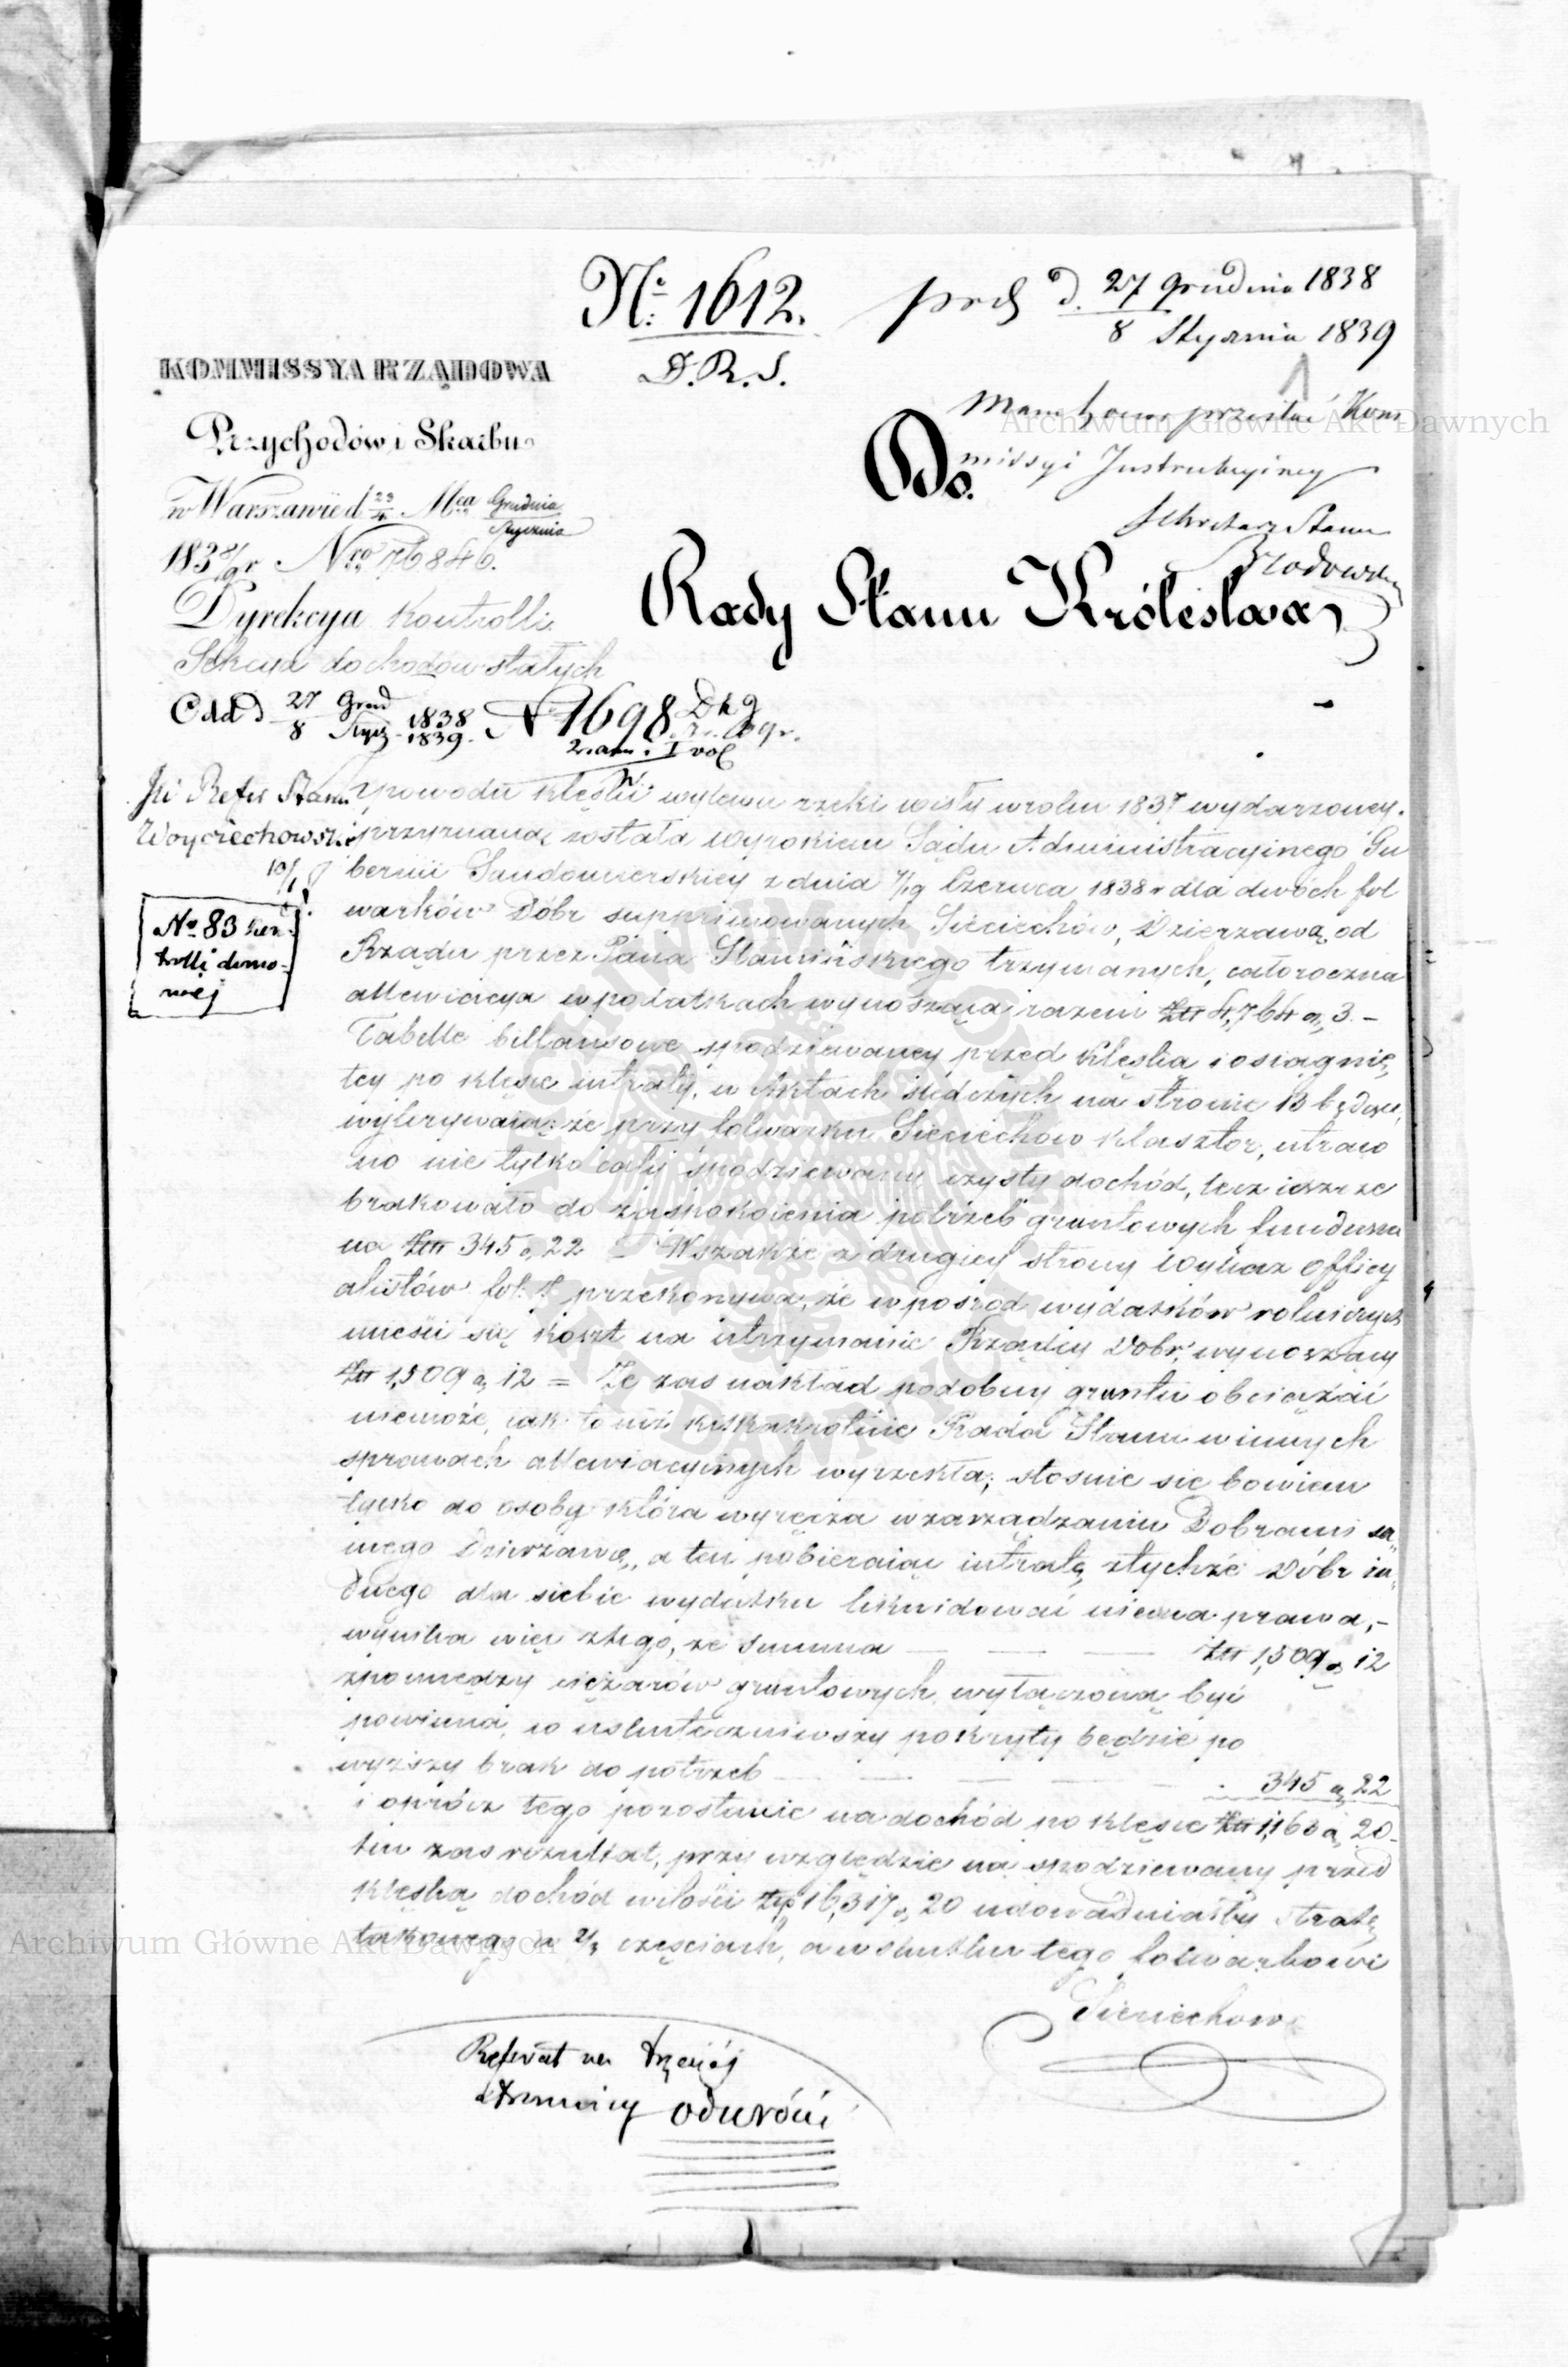 No. 1612.
D.R.S.
d. 27 Grudnia 1838
8 Stycznia 1839
KOMMISSYA RZĄDOWA
Przychodów i Skarbu
w Warszawie d 23/4 Mca Grudnia/Stycznia
1838/9 r Nro 76846.
Dyrekcya Kontrolli
Sekcya dochodów stałych
przesłać Kom
missyi Instrukcyiney
Sekretarz Stanu
Brodowski
Do
Rady Stanu Królestwa
27 Grud 1838
8 Stycz 1839. N 1698
I vol
Referen Stanu
Woyciechowski
No 83 kon-
trolli
Z powodu klęski wylewu rzeki Wisły w roku 1837 wydarzoney.
przyznaną została wyrokiem Sądu Administracyinego Gu
bernii Sandomierskiey z dnia 7/19 Czerwca 1838 r dla dwóch fol
warków Dóbr supprimowanych Sieciechów, Dzierżawą od
Rządu przez Pana trzymanych, całoroczna
allewiacya w podatkach wynosząca razem Złp 4,764 g, 3. –
Tabelle billansowe spodziewaney przed klęską i osiągnię
tey po klęsce intraty, w Aktach śledczych na stronie 13 będące,
wykrywaią: że przy folwarku Sieciechów klasztor, utraco
no nie tylko cały spodziewany czysty dochód, lecz ieszcze
brakowało do zaspokoienia potrzeb gruntowych funduszu
na Złp 345 g, 22 – Wszakże z drugiey strony Wykaz Officy
alistów fol. przekonywa, że w pośród wydatków rolniczych
mieści się koszt na utrzymanie Rządcy Dobr, wynoszący
Złp 1,509 g, 12 = Że zas nakład podobny gruntu obciążać
niemoże, iak to iuż kilkakrotnie Rada Stanu w innych
sprawach allewiacyinych wyrzekła; stosuie się bowiem
tylko do osoby która wyręcza w zarządzaniu Dobrami sa
mego Dzierżawcę, a ten pobieraiąc intratę z tychże Dóbr ża
dnego dla siebie wydatku likwidować niema prawa, –
wynika więc z tego, że summa — — — Złp 1,509 g, 12
z pomiędzy ciężarów gruntowych wyłączoną być
powinna, co uskuteczniwszy pokryty będzie po
wyższy brak do potrzeb — — — — — 345 g, 22
i oprócz tego pozostanie na dochód po klęsce Złp 1,163 g, 20 –
ten zas rezultat, przy względzie na spodziewany przed
klęską dochód w ilości Złp 16,317 g, 20 udowadniałby stratę
takowego w 2/3 częściach, a w skutku tego folwarkowi
Sieciechów
Referat na trzeciéj
stronnicy odwróć
Archiwum Główne Akt Dawnych
Archiwum Główne Akt Dawnych
ARCHIWUM GŁÓWNE AKT DAWNYCH